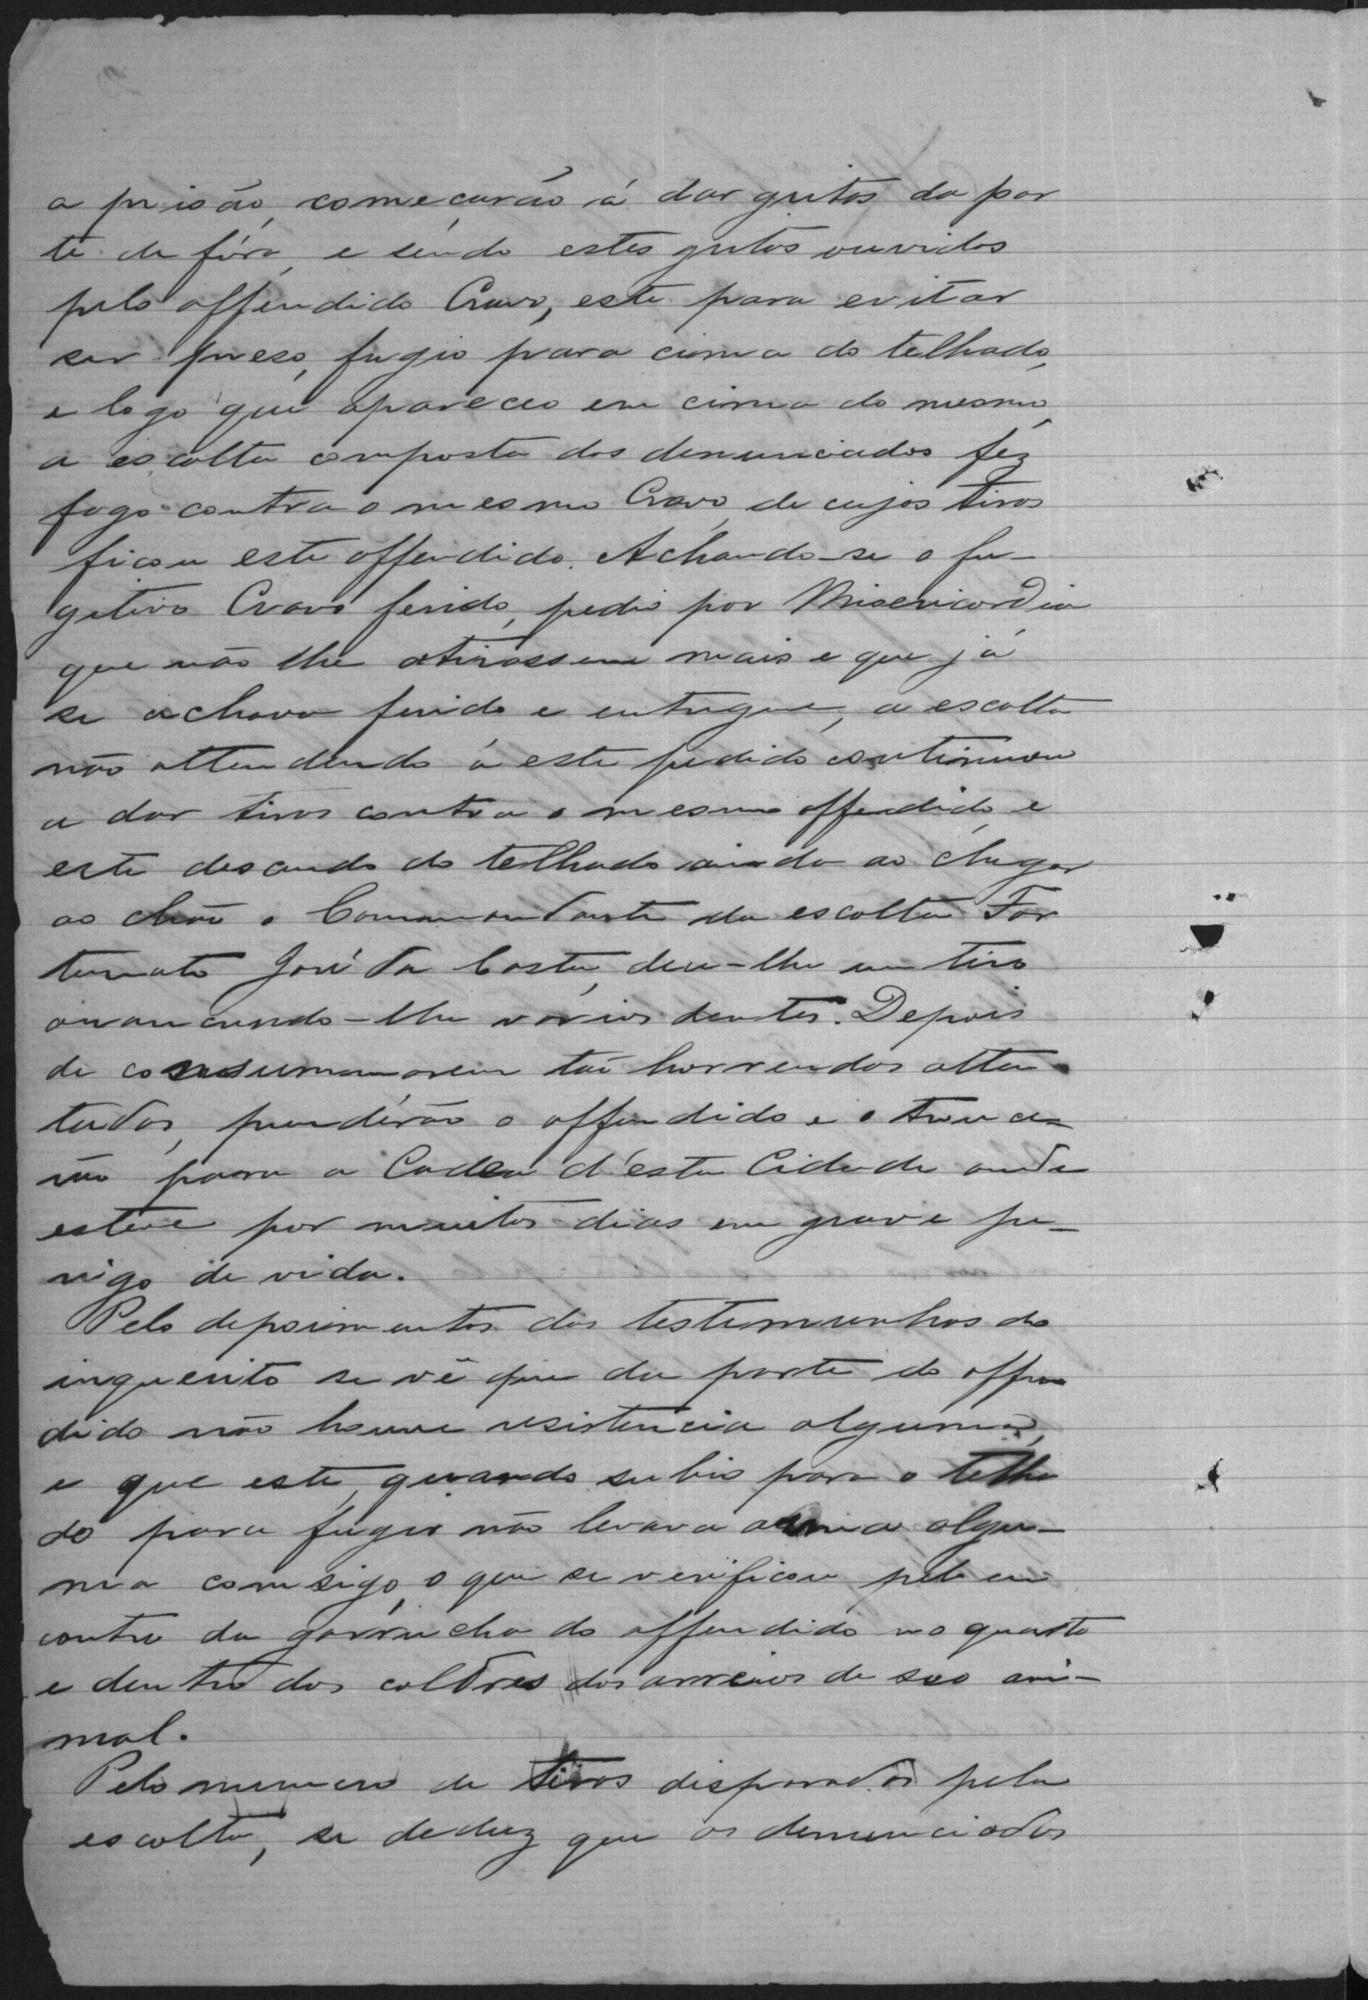 a prisão, começarão á dar gritos da par
te de fóra, e sendo estes gritos ouvidos
pelo offendido Cravo, este para evitar
ser preso, fugio para cima do telhado,
e logo que apareceo em cima do mesmo,
a escolta composta dos denunciados fez
fogo contra o mesmo Cravo, de cujos tiros
ficou este offendido. Achando-se o fu-
getivo Cravo ferido, pedio por Misericordia
que não lhe atirassem mais e que já
se achava ferido e entregue, a escolta
não attendendo á este pedido continuou
a dar tiros contra o mesmo offendido e
este descendo do telhado ainda ao chegar
ao chão o Commandante da escolta For
tunato José da Costa, deu-lhe um tiro
arrancando-lhe varios dentes. Depois
de consumarem tão horrendos atten
tados, prenderão o offendido e o trouce-
rão para a Cadea d'esta Cidade onde
esteve por muitos dias em grave pe-
rigo de vida.
Pelo depoimentos das testemunhas do
inquerito se vê que da parte do offen
dido não houve resistencia alguma,
e que este, quando subio para o telha
do para fugir não levava arma algu-
ma comsigo, o que se verificou pelo en
contro da garrucha do offendido no quarto
e dentro dos coldres dos arreios de seo ani-
mal.
Pelo numero de tiros disparados pela
escolta, se deduz que os denunciados